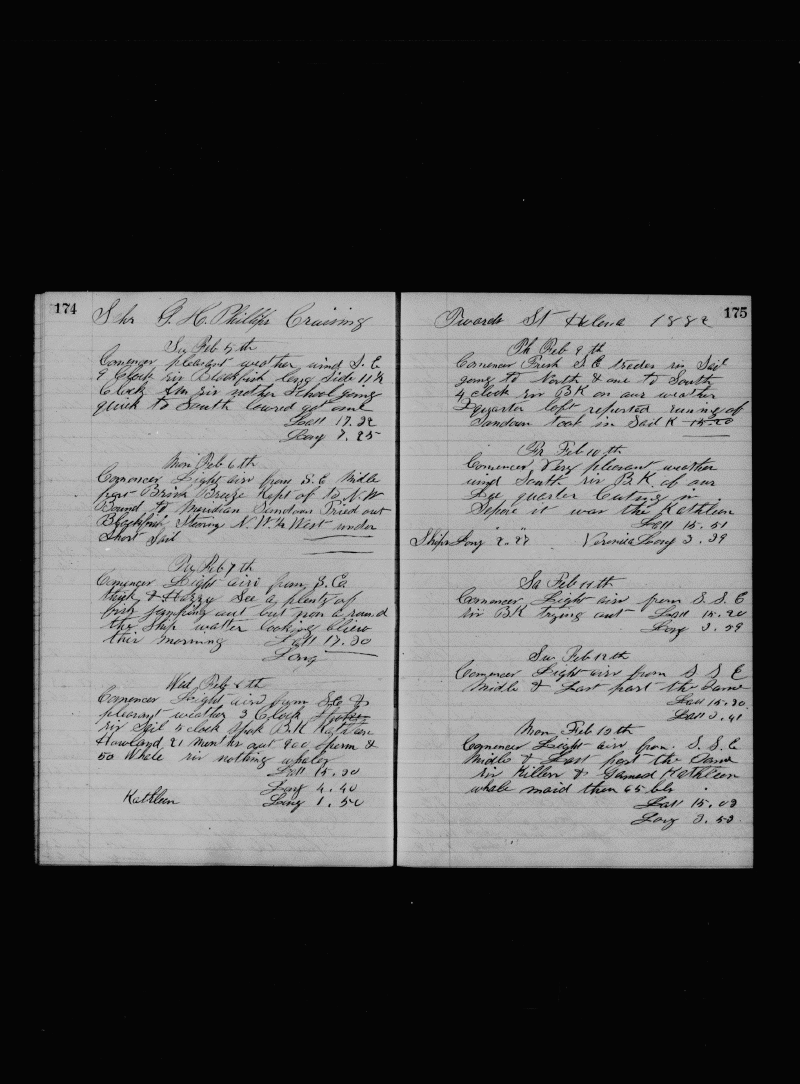 174
Shr G. H. Phillips Cruising
Su Feb 5th
Comences pleasant weather wind S. E
9 Clock riz Blackfish long Side 11 ½
Clock Am riz nother School going
quick to South lowred got one
Latt 17.22
Long 7.25
Mon Feb 6th
Comences Light airs from S. E Middle
part Brisk Breeze Kept of to N. W
Bound to Meridian Sundown Tried out
Blackfish Stering N. W. ½ West under
Short Sail
Tu Feb 7th
Comences Light airs from S. E.
thick & Hazzy See a plenty of
fish jumping out around
the Ship watter looking
this morning Latt 17.30
Long
Wed Feb 8th
Comences Light airs from S.E. &
pleasant weather 3 Clock
riz Sail 5 clock Spok B.K Kathleen
Howland 21 Months out 900 Sperm &
50 Whale riz nothing
Latt 15.30
Long 4.40
Kathleen Long 1.50
175
Towards St Helena 1882
Th Feb 9th
Comences Fresh S. E trades riz Sail
going to North & one to South
4 clock riz BK on our weather
Quarter
Sundown took in Sail 15.20
Fri Feb 10th
Comences Very pleasant weather
wind South riz B.K. of our
Lee quarter Cuting in
it was the Kathleen
Latt 15.51
Ships Long 2.27 Veronica Long 3.39
Sa Feb 11th
Comences Light airs from S. S. E
riz BK trying out Latt 15.20
Long 3.39
Su Feb 12th
Comences Light airs from S S E
Middle & Last part the Same
Latt 15.30
Latt 3.41
Mon Feb 13th
Comences Light airs from S. S. E
Middle & Last part the Same
riz Killers & Gamed Kathleen
whale maid them 65 bls
Latt 15.03
Long 3.53